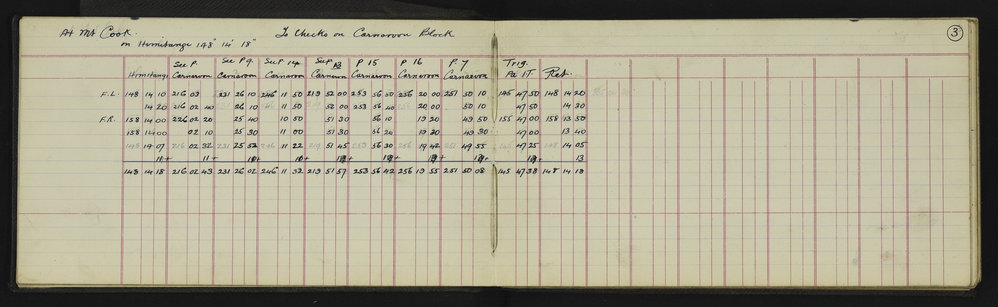 At Mt Cook. To Checks on Carnarvon Block 3
on Hermitange 148° 14' 18"
See P. See P 9. See P 14 See P 13 P 15 P 16 P. 7 Trig.
Hermitange Carnarvon Carnarvon Carnarvon Carnarvon Carnarvon Carnarvon Carnarvon Pa 1T Ref.
F.L. 148 14 10 216 03 231 26 10 246 11 50 219 52 00 253 56 50 256 20 00 251 50 10 145 47 50 148 14 20
14 20 216 02 40 26 10 11 50 52 00 253 56 40 20 00 50 10 47 50 14 30
F.R. 158 14 00 226 02 20 25 40 10 50 51 30 56 10 19 30 49 50 155 47 00 158 13 50
158 14 00 02 10 25 30 11 00 51 30 56 20 19 30 49 30 47 00 13 40
148 14 07 216 02 32 231 25 52 246 11 22 219 51 45 253 56 30 256 19 42 251 49 55 145 47 25 148 14 05
11+ 11+ 10+ 10+ 13
148 14 18 216 02 43 231 26 02 246 11 32 219 51 57 253 56 42 256 19 55 251 50 08 145 47 38 148 14 18